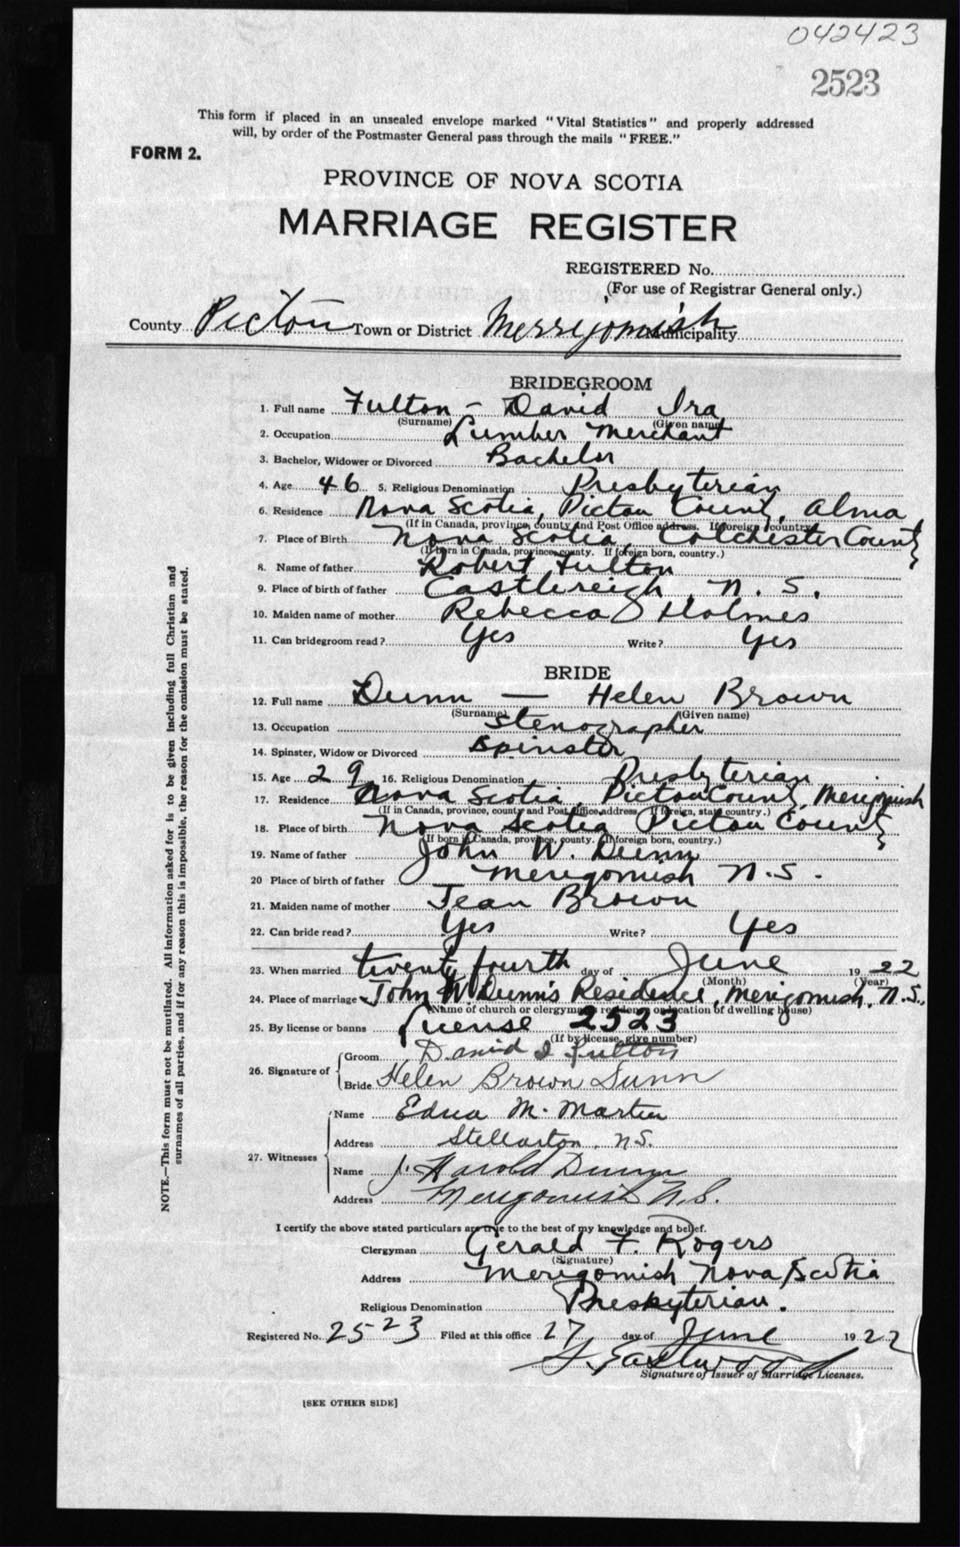 042423
2523
This form if placed in an unsealed envelope marked "Vital Statistics" and properly addressed
will, by order of the Postmaster General pass through the mails "FREE."
FORM 2.
PROVINCE OF NOVA SCOTIA
MARRIAGE REGISTER
REGISTERED No.
(For use of Registrar General only.)
County Pictou Town or District Merrigomish Municipality
BRIDEGROOM
1. Full name Fulton - David Ira
(Surname) (Given name)
2. Occupation Lumber Merchant
3. Bachelor, Widower or Divorced Bachelor
4. Age 46 5. Religious Denomination Presbyterian
6. Residence Nova Scotia, Pictou County, Alma
(If in Canada, province, county and Post Office address. If foreign, country)
7. Place of Birth Nova Scotia, Colchester County
(If born in Canada, province, county. If foreign born, country.)
8. Name of father Robert Fulton
9. Place of birth of father Castlereigh N. S.
10. Maiden name of mother Rebecca Holmes
11. Can bridegroom read? Yes Write? Yes
BRIDE
12. Full name Dunn — Helen Brown
(Surname) (Given name)
13. Occupation Stenographer
14. Spinster, Widow or Divorced Spinster
15. Age 29 16. Religious Denomination Presbyterian
17. Residence Nova Scotia, Pictou County, Merigomish
(If in Canada, province, county and Post Office address If foreign, state country.)
18. Place of birth Nova Scotia Pictou County
(If born in Canada, province, county. If foreign born, country.)
19. Name of father John W. Dunn
20 Place of birth of father Merigomish N.S.
21. Maiden name of mother Jean Brown
22. Can bride read? Yes Write? Yes
23. When married twenty fourth day of June 1922
(Month) (Year)
24. Place of marriage John W Dunn's Residence, Merigomish, N.S.,
(Name of church or clergyman's residence or location of dwelling house)
25. By license or banns License 2523
(If by license, give number)
26. Signature of Groom David I Fulton
Bride Helen Brown Dunn
27. Witnesses Name Edna M. Martin
Address Stellarton, N.S.
Name J. Harold Dunn
Address Merigomish N.S.
I certify the above stated particulars are true to the best of my knowledge and belief.
Clergyman Gerald F. Rogers
(Signature)
Address Merigomish Nova Scotia
Religious Denomination Presbyterian.
Registered No. 2523 Filed at this office 27, day of June 1922
Eastwood
Signature of Issuer of Marriage Licenses.
[SEE OTHER SIDE]
NOTE.—This form must not be mutilated. All information asked for is to be given including full Christian and
surnames of all parties, and if for any reason this is impossible, the reason for the omission must be stated.